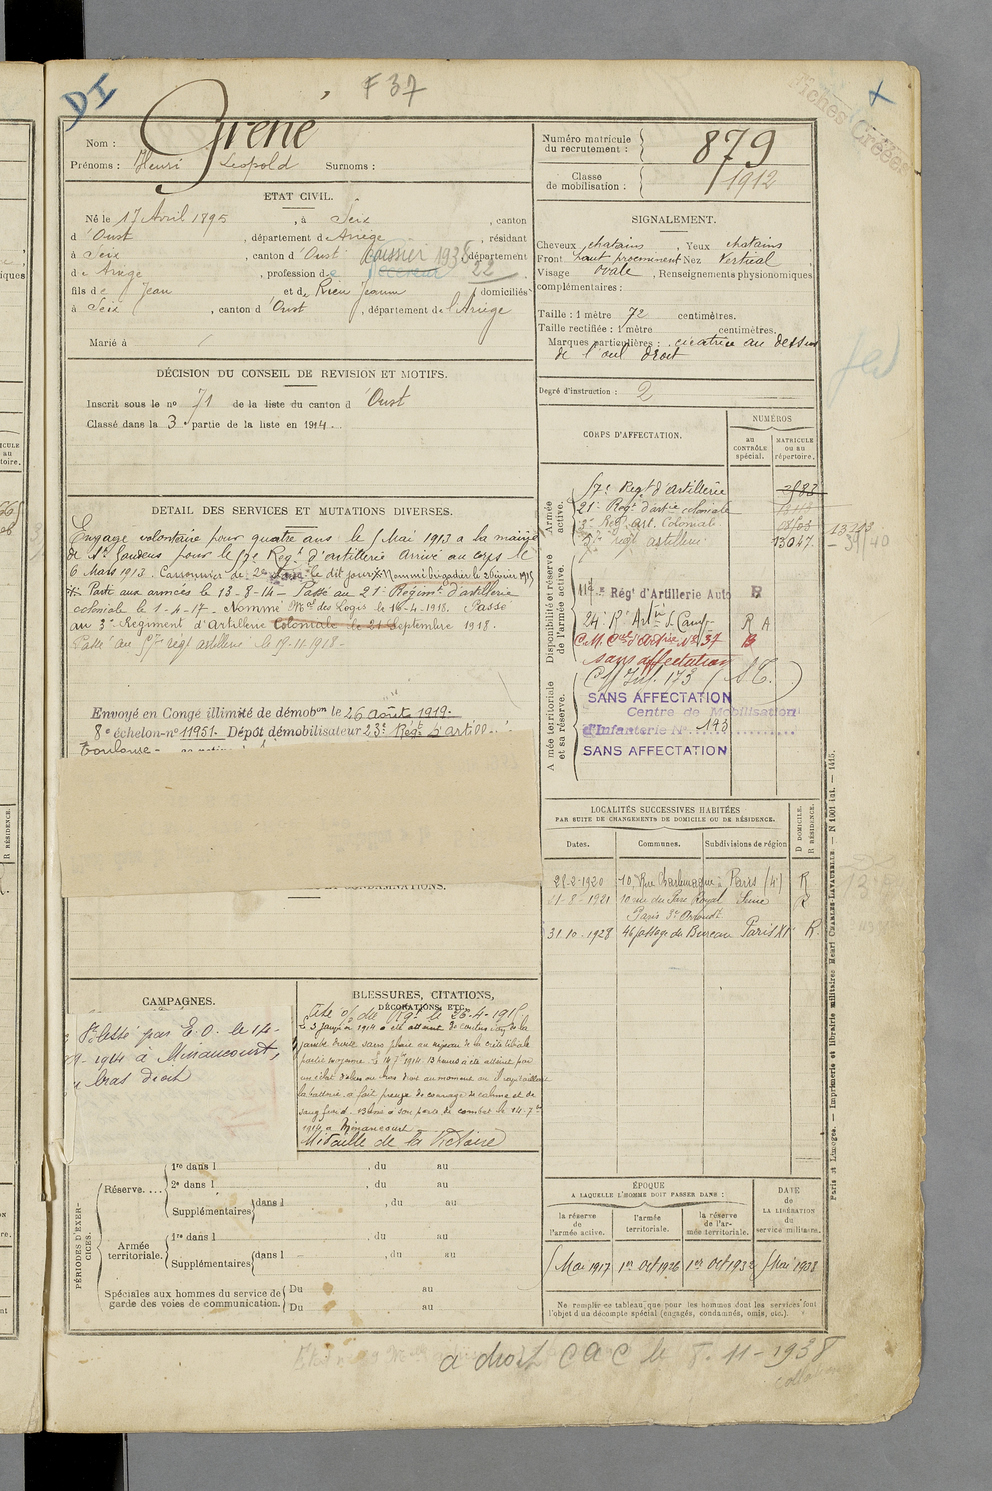 DI
F 37
Fiches Créées
Nom : Grené
Prénoms : Henri Léopold Surnoms :
Numéro matricule du recrutement : 879
Classe de mobilisation : 1912
ETAT CIVIL.
Né le 17 Avril 1895, à Seix, canton
d'Oust, département de Ariège, résidant
à Seix, canton d'Oust caissier 1938 département
de Ariège, profession de 22
fils de Jean et de Rieu Jeanne domiciliés
à Seix, canton d'Oust, département de l'Ariège
Marié à
SIGNALEMENT.
Cheveux chatains, Yeux chatains
Front haut proeminent Nez Vertical
Visage ovale, Renseignements physionomiques
complémentaires :
Taille : 1 mètre 72 centimètres.
Taille rectifiée : 1 mètre centimètres.
Marques particulières : cicatrice au dessus
de l'œil droit
Degré d'instruction : 2
DÉCISION DU CONSEIL DE REVISION ET MOTIFS.
Inscrit sous le nº 71 de la liste du canton d'Oust
Classé dans la 3e partie de la liste en 1914.
DETAIL DES SERVICES ET MUTATIONS DIVERSES.
Engagé volontaire pour quatre ans le 5 Mai 1913 a la mairie
de St Gaudens pour le 57e Regt d'artillerie Arrivé au corps le
6 Mai 1913. Canonnier de 2e classe le dit jour. Nommé brigadier le
Parti aux armées le 13-8-14 - Passé au 21e Régiment d'artillerie
coloniale le 1-4-17 - Nommé Mal des Logis le 16-4-1918. Passé
au 3e Régiment d'Artillerie Coloniale le 21 Septembre 1918.
Passé au 57e régt artillerie le 19.11.1918-
Envoyé en Congé illimité de démobon le 26 août 1919-
8e échelon-nº 11951- Dépôt démobilisateur 23e Régt d'artill
Toulouse-
ET CONDAMNATIONS.
CORPS D'AFFECTATION.
NUMÉROS
au CONTRÔLE spécial.
MATRICULE ou au répertoire.
Armée active.
57e Regt d'artillerie
21e Regt d'artie coloniale
3e Rég. Art. Coloniale
57e regt artillerie 13047
Disponibilité et réserve de l'armée active.
114e Régt d'Artillerie Auto R
24e Rt Artie de Camp- R A
C.M. Art d'Artie Nº 37 B
sans affectation
Armée territoriale et sa réserve.
SANS AFFECTATION
Centre de Mobilisation
d'Infanterie Nº 173
SANS AFFECTATION
LOCALITÉS SUCCESSIVES HABITÉES
PAR SUITE DE CHANGEMENTS DE DOMICILE OU DE RÉSIDENCE.
Dates. Communes. Subdivisions de région
D DOMICILE. R RÉSIDENCE.
28-2-1920 10, Rue Charlemagne à Paris (4e) R
11-8-1921 10 rue du Parc Royal Seine R
Paris 3e
31-10-1928 46 passage du Bureau Paris XI R
CAMPAGNES.
Blessé par E.O. le 14-
9-1914 à Minaucourt,
bras droit
BLESSURES, CITATIONS,
DÉCORATIONS, ETC.
Cité o/ du Rgt le
partie moyenne. le 14 7bre 1914. 13 heures a été atteint par
un éclat d'obus au bras droit au moment où il ravitaillait
la batterie. a fait preuve de courage de calme et de
sang froid. Blessé a son poste de combat le 14-7bre
1914 a Minaucourt
Médaille de la Victoire
PÉRIODES D'EXERCICES.
Réserve....
1re dans l , du au
2e dans l , du au
Supplémentaires dans l , du au
Armée territoriale.
1re dans l , du au
Supplémentaires dans l , du au
Spéciales aux hommes du service de garde des voies de communication.
Du au
Du au
ÉPOQUE
A LAQUELLE L'HOMME DOIT PASSER DANS :
la réserve de l'armée active.
l'armée territoriale.
la réserve de l'armée territoriale.
DATE de LA LIBÉRATION du service militaire.
5 Mai 1917 1er Oct 1926 1er Oct 1932 5 Mai 1938
Ne remplir ce tableau que pour les hommes dont les services font
l'objet d'un décompte spécial (engagés, condamnés, omis, etc.).
Paris et Limoges. — Imprimerie et librairie militaires Henri CHARLES-LAVAUZELLE.
a droit CAC le 8-11-1938